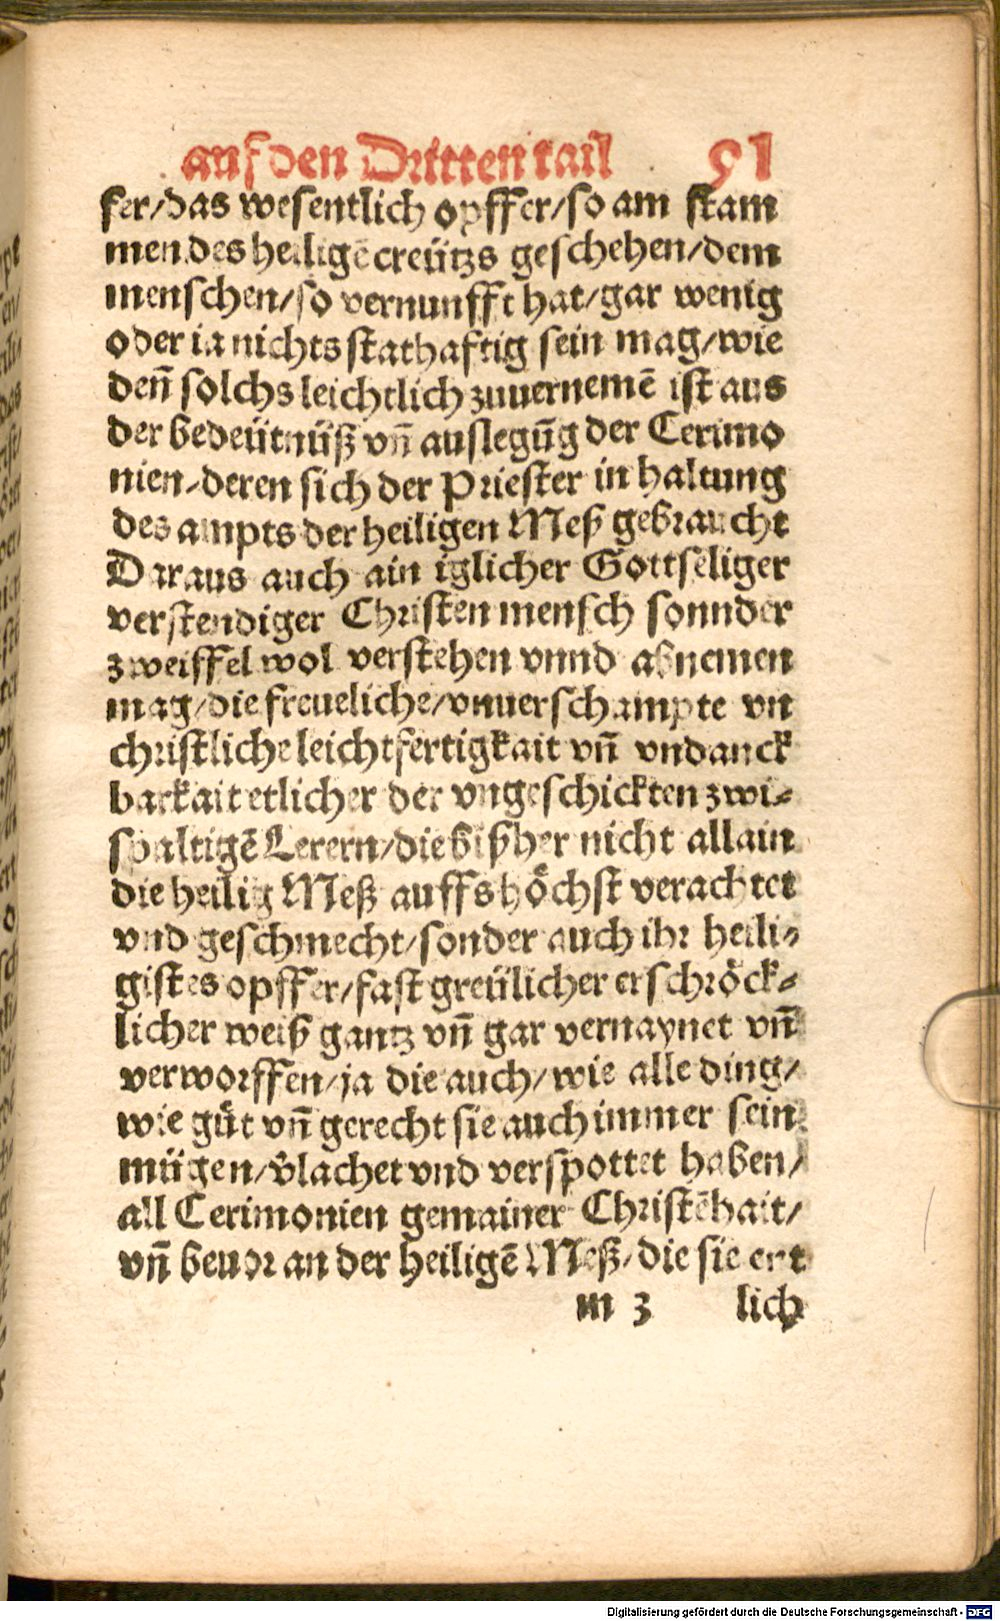 auf den Dritten tail 91
fer/das wesentlich opffer/so am stam
men des heiligē creützs geschehen/dem
menschen/so vernunfft hat/gar wenig
oder ia nichts stathafftig sein mag/wie
deñ solchs leichtlich zuuernemē ist aus
der bedeütnüß vñ auslegūg der Cerimo
nien/deren sich der Priester in haltung
des ampts der heiligen Meß gebraucht
Daraus auch ain iglicher Gottseliger
verstendiger Christen mensch sonnder
zweiffel wol verstehen vnnd abnemen
mag/die freueliche/vnuerschampte vn
christliche leichtfertigkait vñ vndanck
barkait etlicher der vngeschickten zwi-
spaltigē Lerern/die bißher nicht allain
die heilig Meß auffs höchst verachtet
vnd geschmecht/sonder auch ihr heili-
gistes opffer/fast greülicher erschröck-
licher weiß gantz vñ gar vernaynet vñ
verworffen/ja die auch/wie alle ding/
wie gůt vñ gerecht sie auch immer sein
mügen/v̄lachet vnd verspottet haben/
all Cerimonien gemainer Christēhait/
vñ beuor an der heiligē Meß/die sie ert
m 3 lich
Digitalisierung gefördert durch die Deutsche Forschungsgemeinschaft - DFG